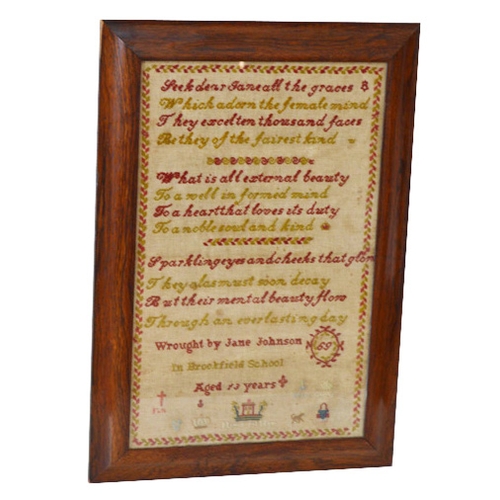 Seek dear Jane all the graces
Which adorn the female mind
They excel ten thousand faces
Be they of the fairest kind
What is all external beauty
To a well in formed mind
To a heart that loves its duty
To a noble soul and kind
Sparkling eyes and cheeks that glow
They alas must soon decay
But their mental beauty flow
Through an everlasting day
Wrought by Jane Johnson
In Brockfield School
Aged 13 years